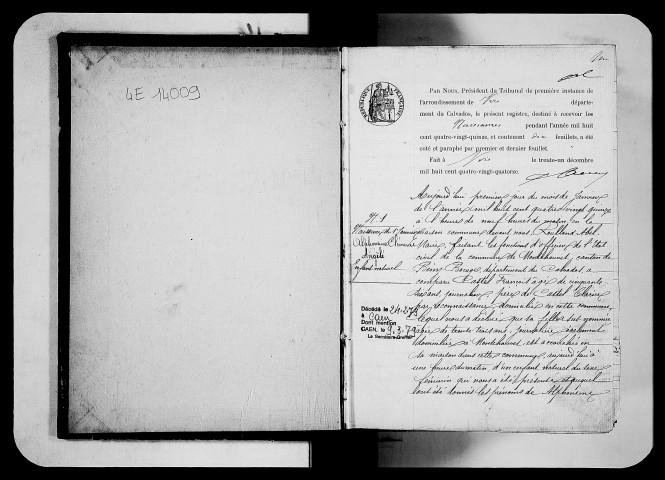 4E 14009
RÉPUBLIQUE FRANÇAISE
Par Nous, Président du Tribunal de première instance de
l'arrondissement de Vire départe-
ment du Calvados, le présent registre, destiné à recevoir les
Naissances pendant l'année mil huit
cent quatre-vingt-quinze, et contenant dix feuillets, a été
coté et paraphé par premier et dernier feuillet.
Fait à Vire le trente-un décembre
mil huit cent quatre-vingt-quatorze.
N° 1
Naissance du 1er Janvier
Alphonsine
Angèle
Enfant naturel
Décédé le 24.2.79
à Caen
Dont mention
CAEN, le 9.3.79
Le Secrétaire-Greffier
Aujourd'hui premier jour du mois de Janvier
de l'année mil huit cent quatre vingt quinze
à l'heure de neuf heures du matin, en la
maison commune devant nous Roulland Abel
Maire, faisant les fonctions d'officier de l'Etat
civil de la commune de Montchauvet, canton de
Beny Bocage, département du Calvados, a
comparu Castel François âgé de cinquante
ans, journalier, père de Castel
par reconnaissance, domicilié en cette commune
lequel nous a déclaré que sa fille sus nommée
âgée de trente trois ans, journalière également
domiciliée à Montchauvet, est accouchée en
sa maison dans cette commune, aujourd'hui à
une heure du matin d'un enfant naturel du sexe
féminin qui nous a été présenté et auquel
ont été donnés les prénoms de Alphonsine